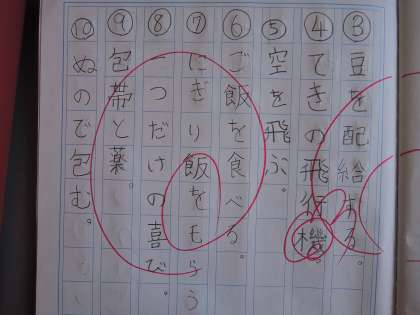 ③豆を配給する。
④てきの飛行機。
⑤空を飛ぶ。
⑥ご飯を食べる。
⑦にぎり飯をもらう
⑧一つだけの喜び。
⑨包帯と薬。
⑩ぬので包む。